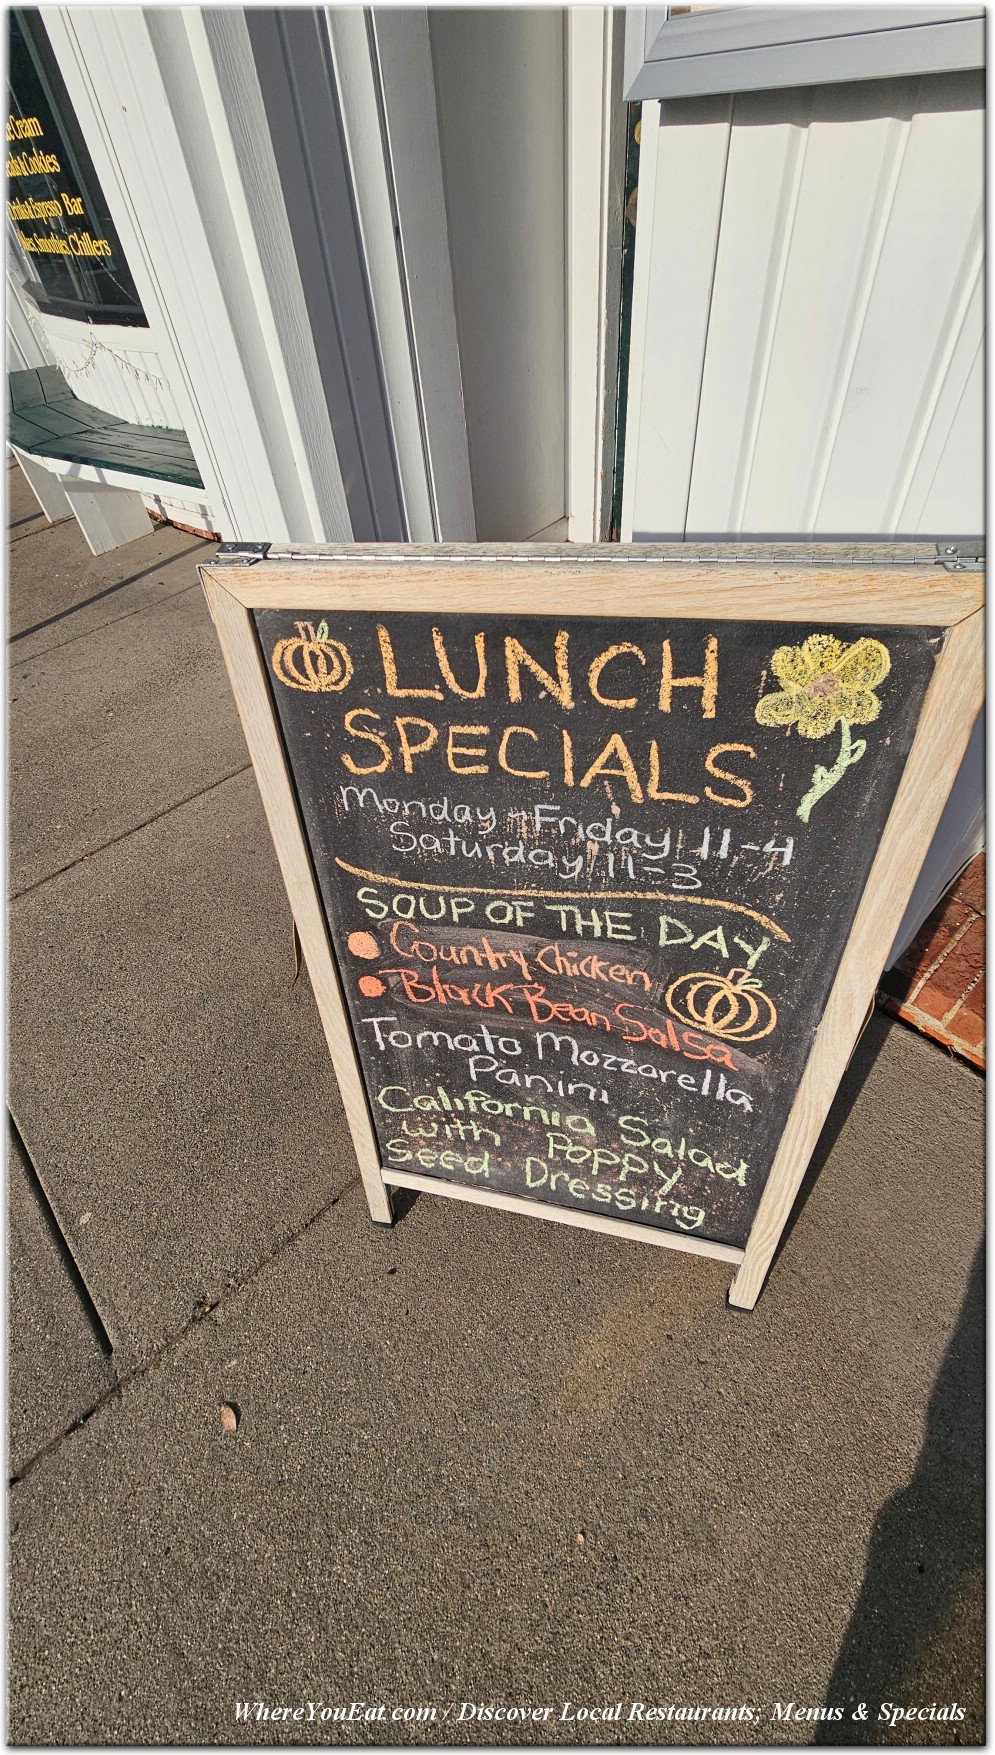 Cream
& Cookies
Drinks & Espresso Bar
Smoothies, Chillers
LUNCH
SPECIALS
Monday - Friday 11-4
Saturday 11-3
SOUP OF THE DAY
Country Chicken
Black Bean Salsa
Tomato Mozzarella
Panini
California Salad
with Poppy
Seed Dressing
WhereYouEat.com / Discover Local Restaurants; Menus & Specials